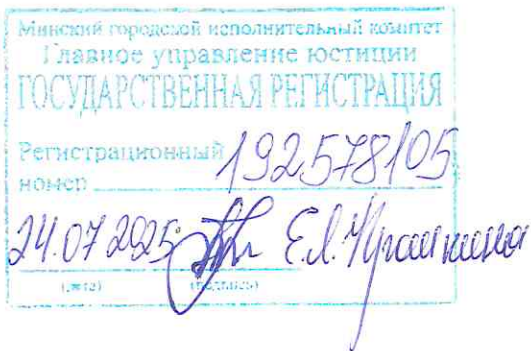 Минский городской исполнительный комитет
Главное управление юстиции
ГОСУДАРСТВЕННАЯ РЕГИСТРАЦИЯ
Регистрационный
номер 192578105
24.07.2025 Е.Л.
(дата) (подпись)